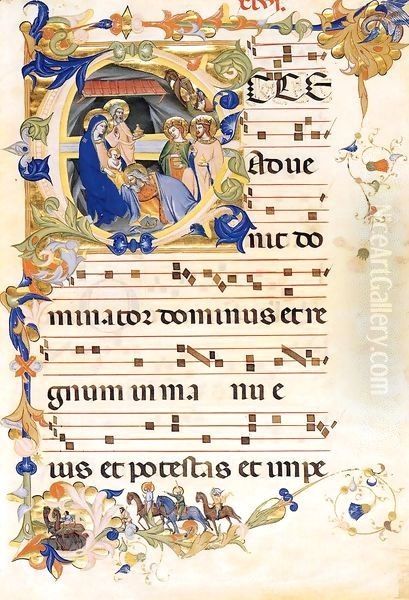 ECCE
adue
nit do
minator dominus et re
gnum in ma nu e
ius et potestas et impe
NiceArtGallery.com